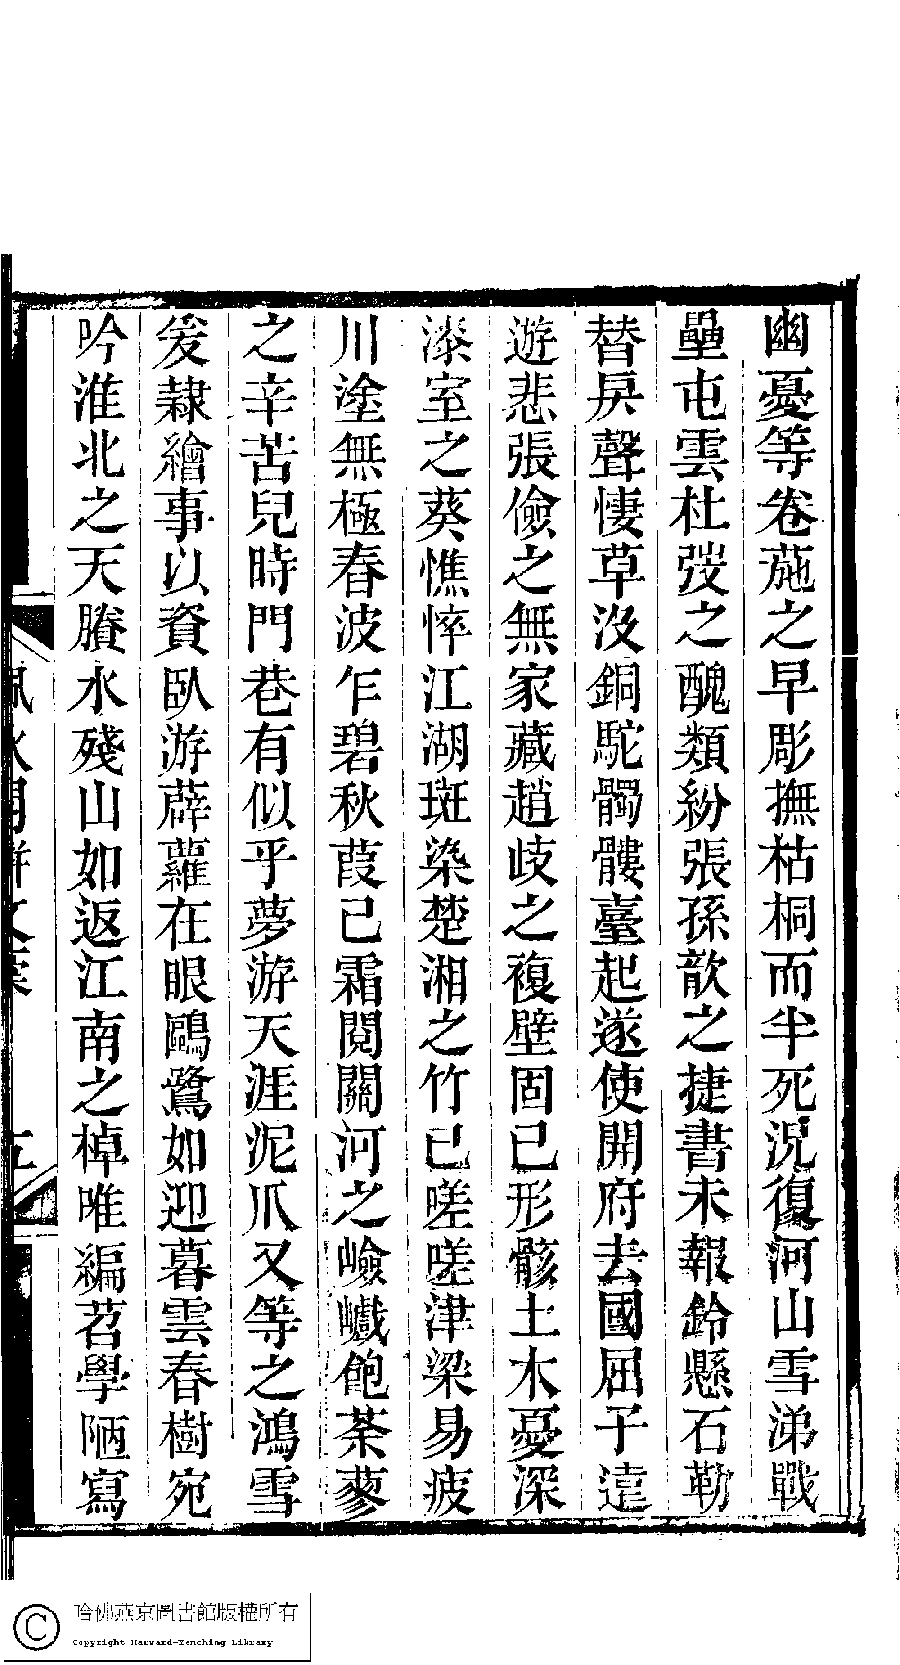 幽憂等卷葹之早彫撫枯桐而半死況復河山雪涕戰
壘屯雲杜弢之醜類紛張孫歆之捷書未報鈴懸石勒
替戾聲悽草沒銅駝髑髏臺起遂使開府去國屈子遠
遊悲張儉之無家藏趙歧之複壁固已形骸土木憂深
漆室之葵憔悴江湖斑染楚湘之竹已嗟嗟津梁易疲
川塗無極春波乍碧秋葭已霜閱關河之嶮巇飽荼蓼
之辛苦兒時門巷有似乎夢游天涯泥爪又等之鴻雪
爰隸繪事以資臥游薜蘿在眼鷗鷺如迎暮雲春樹宛
吟淮北之天賸水殘山如返江南之棹唯編苕學陋寫
哈佛燕京圖書館版權所有
Copyright Harvard-Yenching Library